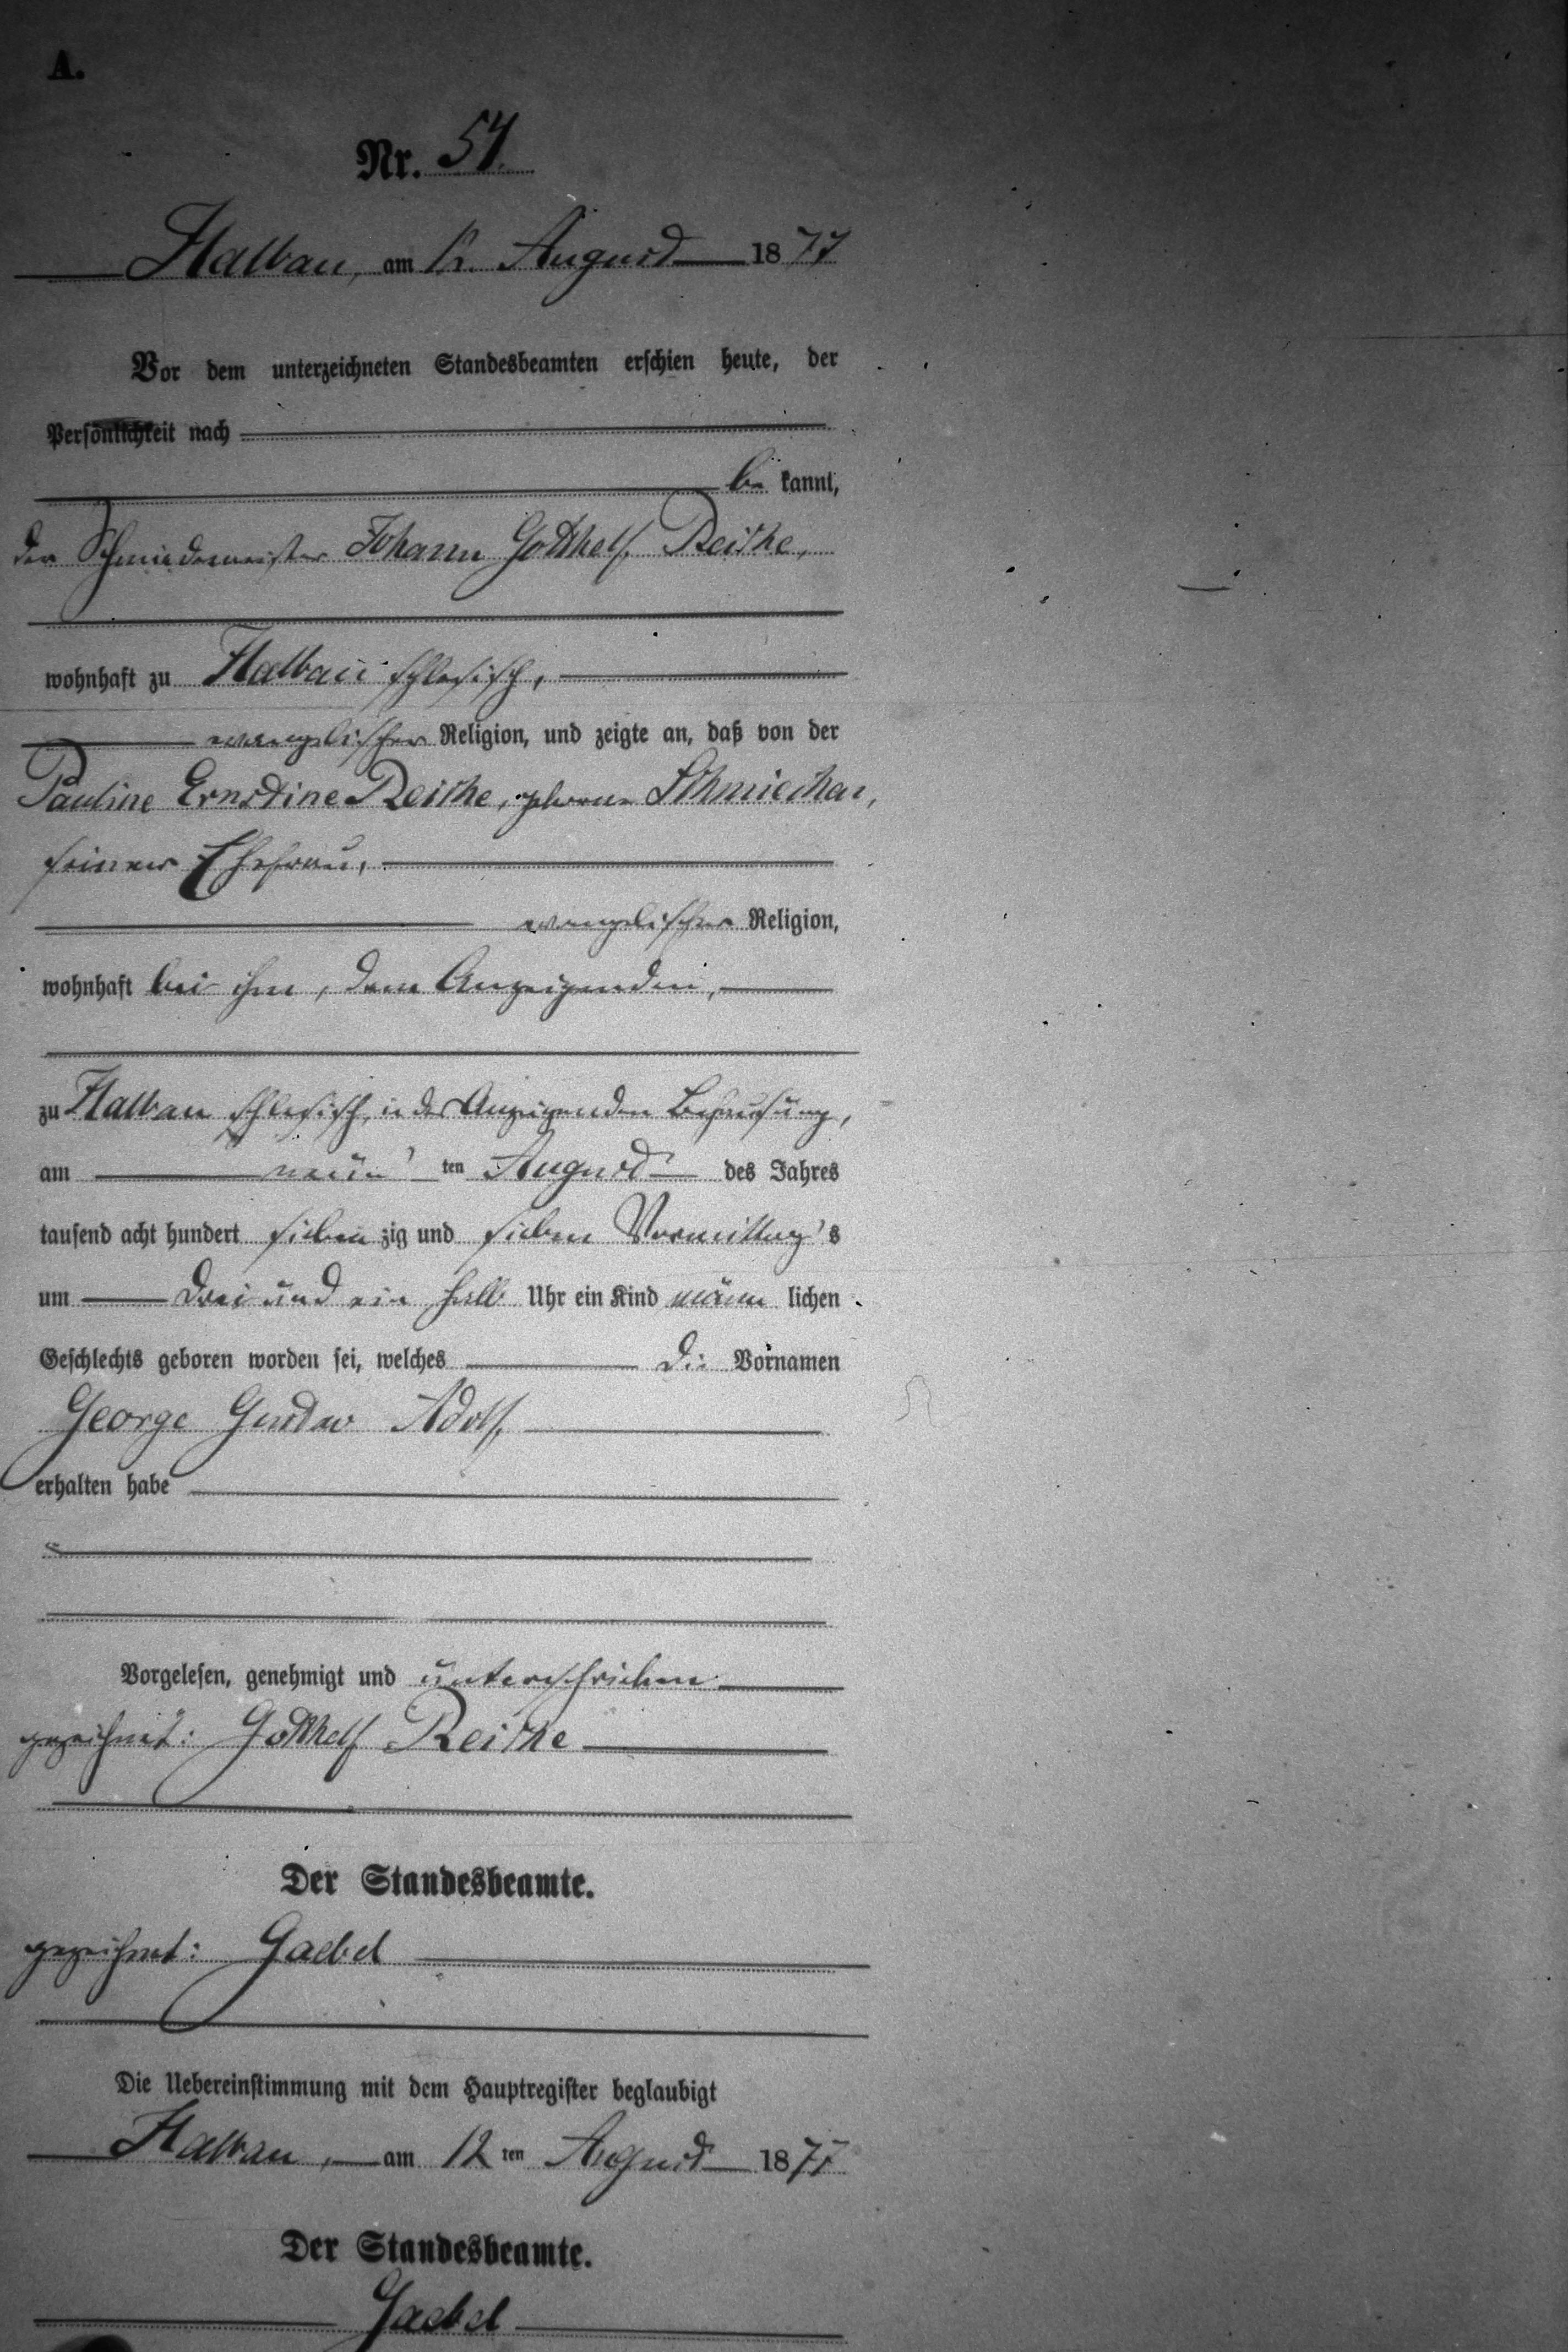 A.
Nr. 57.
Halbau, am 12. August 1877
Vor dem unterzeichneten Standesbeamten erschien heute, der
Persönlichkeit nach
be kannt,
der Schmiedemeister Johann Gotthelf Reiche,
wohnhaft zu Halbau schlesisch,
evangelischer Religion, und zeigte an, daß von der
Pauline Ernstine Reiche, geborene
seiner Ehefrau,
evangelischer Religion,
wohnhaft bei ihm, dem Anzeigenden,
zu Halbau schlesisch, in des Anzeigenden Behausung,
am neun ten August des Jahres
tausend acht hundert sieben zig und sieben Vormittag's
um drei und ein halb Uhr ein Kind männ lichen
Geschlechts geboren worden sei, welches die Vornamen
George Gustav Adolf,
erhalten habe
Vorgelesen, genehmigt und unterschrieben
gezeichnet: Gotthelf Reiche
Der Standesbeamte.
gezeichnet: Gaebel
Die Uebereinstimmung mit dem Hauptregister beglaubigt
Halbau, am 12 ten August 1877
Der Standesbeamte.
Gaebel